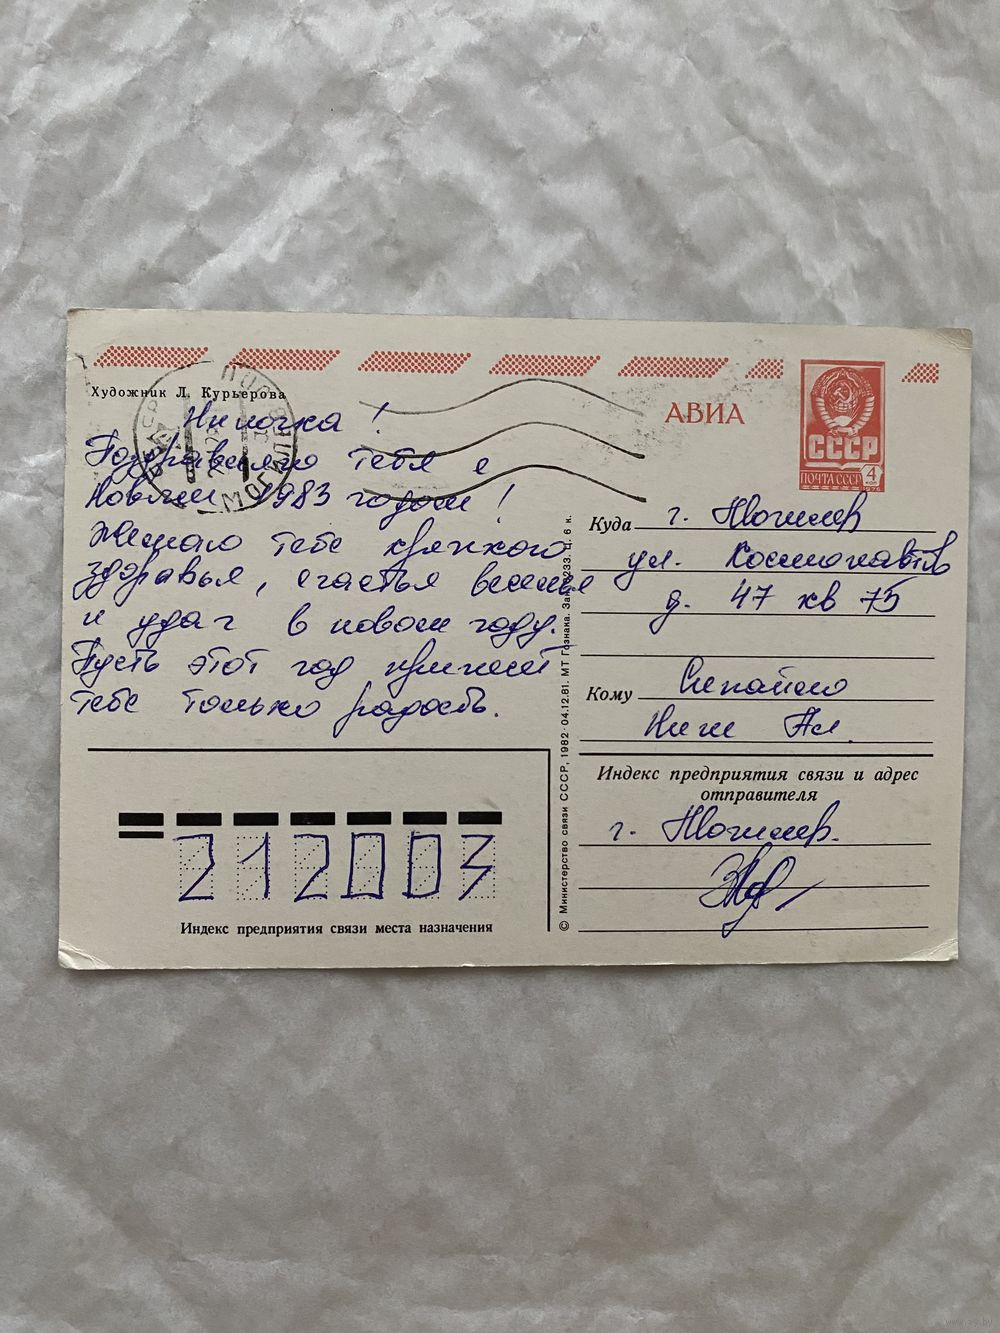 Художник Л. Курьерова
Ниночка!
Поздравляю тебя с
Новым 1983 годом!
Желаю тебе крепкого
здоровья, счастья веселья
и удач в новом году.
Пусть этот год принесёт
тебе только радость.
МОГИЛЕВ
АВИА
СССР
ПОЧТА СССР
4
коп
1976
Куда г. Могилев
ул. Космонавтов
д. 47 кв 75
Кому
Нине Ал.
Индекс предприятия связи и адрес
отправителя
г. Могилев.
212003
Индекс предприятия связи места назначения
© Министерство связи СССР, 1982 · 04.12.81. МТ Гознака. Ц. 6 к.